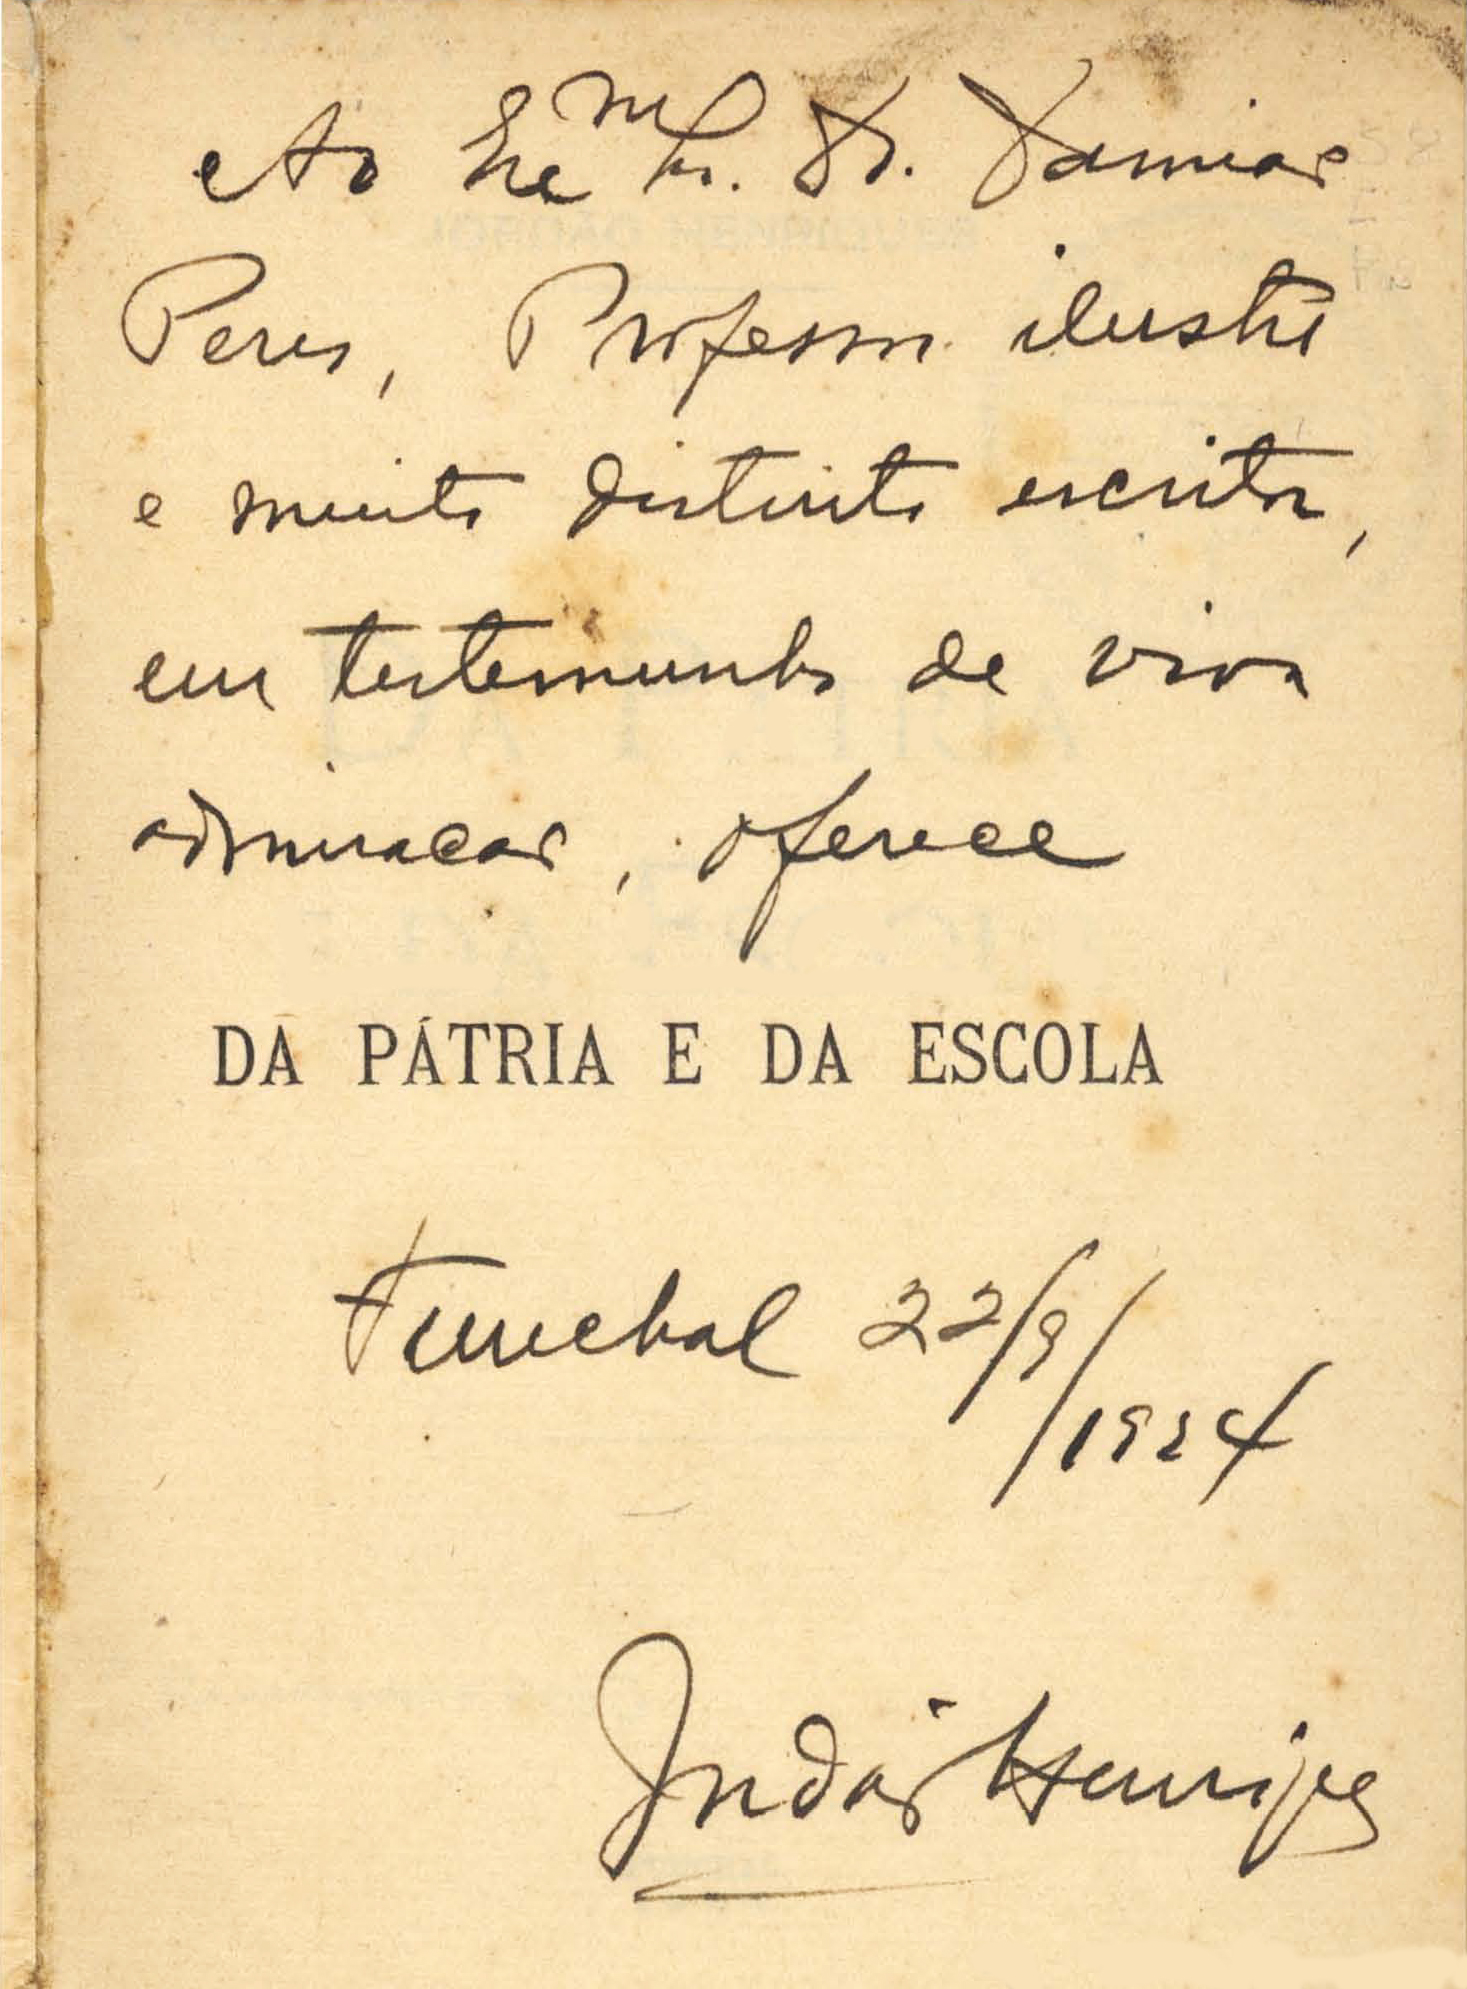 Ao Exmo Sr. Dr. Damião
Peres, Professor ilustre
e muito distinto escritor,
em testemunho de viva
admiração, oferece
DA PÁTRIA E DA ESCOLA
Funchal 22/9/1924
Jordão Henriques